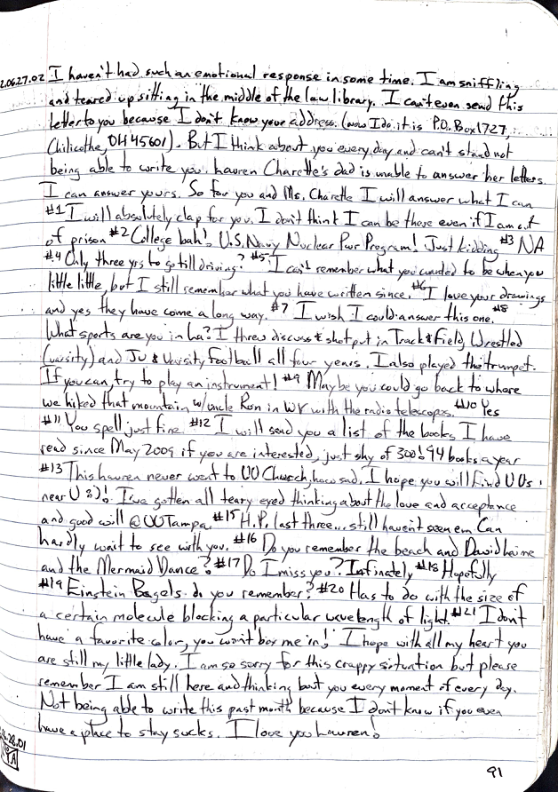 20627.02 I haven't had such an emotional response in some time. I am sniffling
and teared up sitting in the middle of the law library. I can't even send this
letter to you because I don't know your address. (now I do it is P.O. Box 1727
Chilicothe, OH 45601). But I think about you every day and can't stand not
being able to write you. Lauren Charette's dad is unable to answer her letters
I can answer yours. So for you and Ms. Charette I will answer what I can
#1 I will absolutely clap for you. I don't think I can be there even if I am out
of prison #2 College bah! U.S. Navy Nuclear Pwr Program! Just kidding #3 NA
#4 Only three yrs to go till driving? #5 I can't remember what you wanted to be when you
little little, but I still remember what you have written since. #6 I love your drawings
and yes they have come a long way. #7 I wish I could answer this one. #8
What sports are you in ha? I threw discuss & shot put in Track & Field, Wrestled
(varsity) and JV & Varsity Football all four years. I also played the trumpet.
If you can, try to play an instrument! #9 Maybe you could go back to where
we hiked that mountain w/ uncle Ron in WV with the radio telescopes. #10 Yes
#11 You spell just fine. #12 I will send you a list of the books I have
read since May 2009 if you are interested, just shy of 300! 94 books a year
#13 This Lauren never went to UU Church, how sad. I hope you will find UUs
near U 2)! I've gotten all teary eyed thinking about the love and acceptance
and good will @ UU Tampa #15 H.P. last three... still haven't seen em Can
hardly wait to see with you. #16 Do you remember the beach and David
and the Mermaid Dance? #17 Do I miss you? Infinately #18 Hopefully
#19 Einstein Bagels. do you remember? #20 Has to do with the size of
a certain molecule blocking a particular wavelength of light. #21 I don't
have a favorite color, you won't box me in! I hope with all my heart you
are still my little lady. I am so sorry for this crappy situation but please
remember I am still here and thinking bout you every moment of every day.
Not being able to write this past month because I don't know if you even
have a place to stay sucks. I love you Lauren!
28.01
YA
91